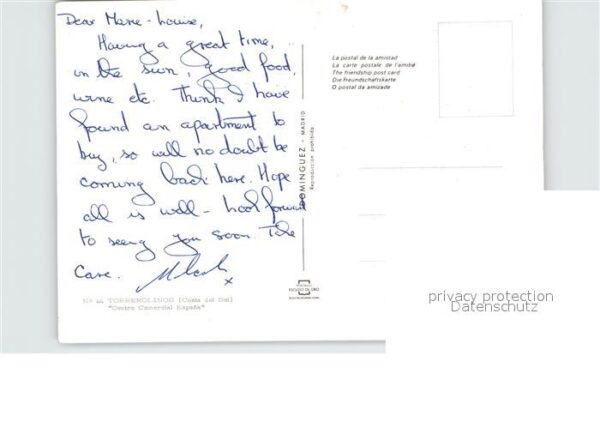 Dear Marie-Louise,
Having a great time,
in the sun, good food,
wine etc. Think I have
found an apartment to
buy, so will no doubt be
coming back here. Hope
all is well - look forward
to seeing you soon Take
Care.
x
Nº 44 TORREMOLINOS (Costa del Sol)
"Centro Comercial España"
DOMINGUEZ - MADRID
Reproducción prohibida
ESCUDO DE ORO
La postal de la amistad
La carte postale de l'amitié
The friendship post card
Die Freundschaftskarte
O postal da amizade
privacy protection
Datenschutz